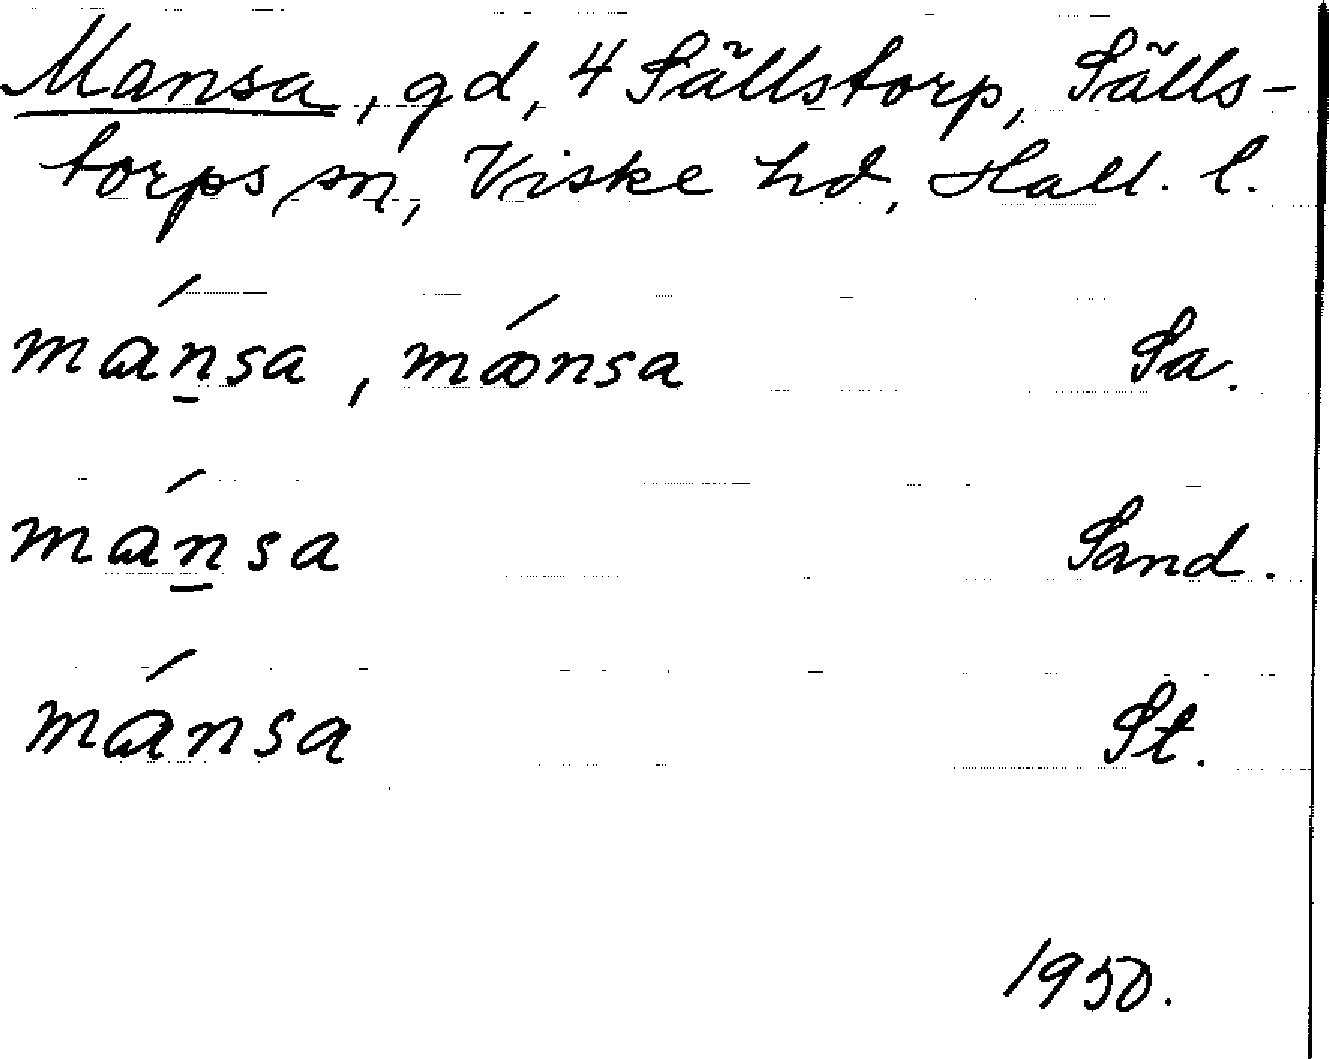 Mansa, gd, 4 Sällstorp, Sälls-
torps sn, Viske hd, Hall. l.
mán̲sa, mónsa Sa.
mán̲sa Sand.
mánsa St.
1950.